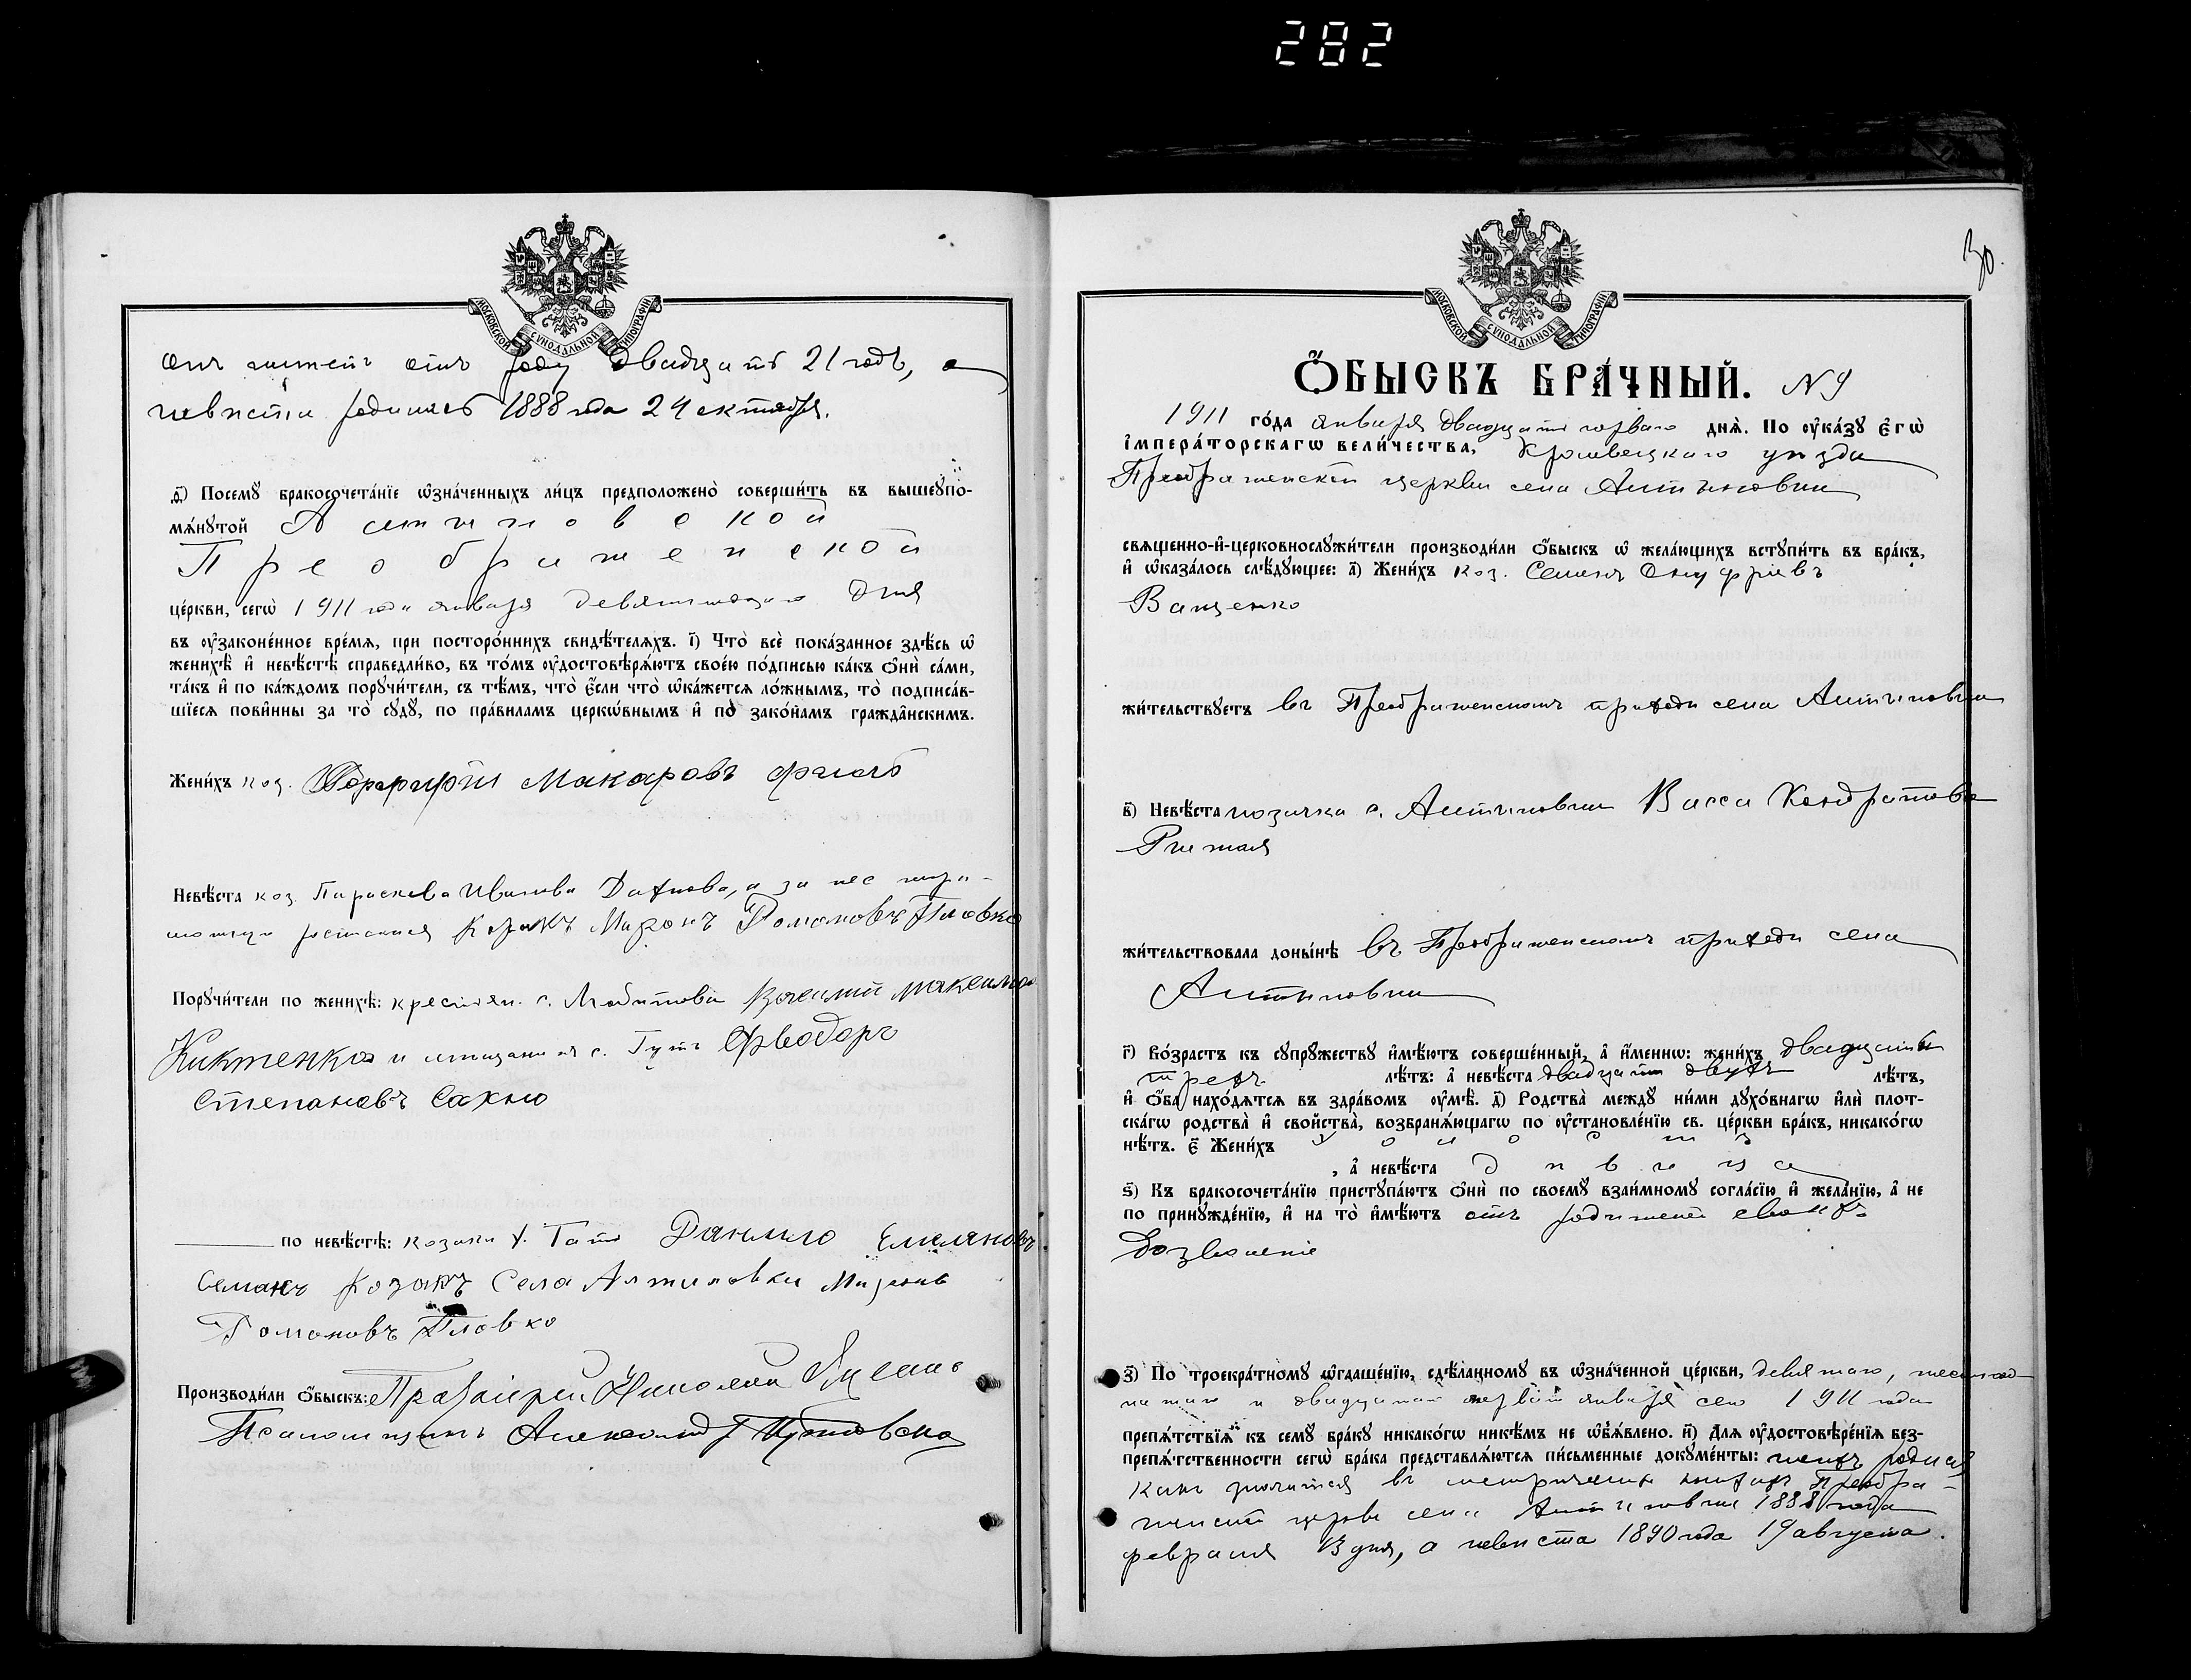 282
МОСКОВСКОЙ СУНОДАЛЬНОЙ ТИПОГРАФІИ
отъ роду двадцать 21 годъ, а
невѣста родилась 1888 года 24 октября.
д҃) Посемꙋ бракосочета́нїе ѡ҆зна́ченныхъ ли́цъ предположено̀ соверши́ть въ вышеꙋпо-
мѧ́нꙋтой Алтыновской
Преображенской
це́ркви, сегѡ̀ 1911 года января девятнадцаго дня
въ ᲂу҆законе́нное вре́мѧ, при посторо́ннихъ свидѣ́телѧхъ. і҃) Что̀ всѐ пока́занное здѣ́сь ѡ҆
женихѣ̀ и҆ невѣ́стѣ справедли́во, въ то́мъ ᲂу҆достовѣрѧ́ютъ свое́ю по́дписью ка́къ ѻ҆нѝ са́ми,
та́къ и҆ по ка́ждомъ порꙋчи́тели, съ тѣ́мъ, что̀ є҆́сли что̀ ѡ҆ка́жетсѧ ло́жнымъ, то̀ подписа́в-
шїесѧ пови́нны за то̀ сꙋдꙋ̀, по пра́виламъ церкѡ́внымъ и҆ по зако́намъ гражда́нскимъ.
Жени́хъ коз. Порфирій Макаровъ
Невѣ́ста коз. Параскева Иванова а за нее негра-
мотную козакъ Миронъ Романовъ Пловко
Порꙋчи́тели по женихѣ̀: крестьян. с. Василій Максимов
Киктенко и мещанинъ с. Гутъ Феодоръ
Степановъ Сахно
по невѣ́стѣ: козаки х. Даніило Емеляновъ
Семакъ козакъ Села Алтыновки Миронъ
Романовъ Пловко
Производи́ли ѻ҆́быскъ: Протоіерей Николай
Псаломщикъ Александръ
30.
МОСКОВСКОЙ СУНОДАЛЬНОЙ ТИПОГРАФІИ
Ѻ҆́БЫСКЪ БРА́ЧНЫЙ. N 9
1911 го́да января двадцать перваго днѧ̀. По ᲂу҆ка́зꙋ є҆гѡ̀
і҆мпера́торскагѡ вели́чества, Кролевецкаго уѣзда
Преображенской церкви села Алтыновки
свѧщенно-и҆-церковнослꙋжи́тели производи́ли ѻ҆́быскъ ѡ҆ жела́ющихъ встꙋпи́ть въ бра́къ,
и҆ ѡ҆каза́лось слѣ́дꙋющее: а҃) Жени́хъ коз. Семенъ Онуфріевъ
Ващенко
жи́тельствꙋетъ въ Преображенскомъ приходѣ села Алтыновки
в҃) Невѣ́ста козачка с. Алтыновки Васса Кондратова
жи́тельствовала доны́нѣ въ Преображенскомъ приходѣ села
Алтыновки
г҃) Во́зрастъ къ сꙋпрꙋ́жествꙋ и҆мѣ́ютъ соверше́нный, а҆ и҆́меннѡ: жени́хъ двадцати
трехъ лѣ́тъ: а҆ невѣ́ста двадцати двухъ лѣ́тъ,
и҆ ѻ҆́ба нахо́дѧтсѧ въ здра́вомъ ᲂу҆мѣ̀. д҃) Родства̀ междꙋ̀ ни́ми дꙋхо́внагѡ и҆лѝ плот-
ска́гѡ родства̀ и҆ сво́йства, возбранѧ́ющагѡ по ᲂу҆становле́нїю св. це́ркви бра́къ, никако́гѡ
нѣ́тъ. є҃) Жени́хъ холостъ
, а҆ невѣ́ста дѣвица
ѕ҃) Къ бракосочета́нїю пристꙋпа́ютъ ѻ҆нѝ по своемꙋ̀ взаи́мномꙋ согла́сїю и҆ жела́нїю, а҆ не
по принꙋжде́нїю, и҆ на то̀ и҆мѣ́ютъ отъ родителей своихъ
дозволеніе
з҃) По троекра́тномꙋ ѡ҆глаше́нїю, сдѣ́ланномꙋ въ ѡ҆зна́ченной це́ркви, девятаго, шестнад-
цатаго и двадцать перваго января сего 1911 года
препѧ́тствїѧ къ семꙋ̀ бра́кꙋ никако́гѡ никѣ́мъ не ѡ҆б̾ѧ́влено. и҃) Длѧ ᲂу҆достовѣре́нїѧ без-
препѧ́тственности сегѡ̀ бра́ка представлѧ́ютсѧ пи́сьменные докꙋме́нты: женихъ родился
какъ значится въ метрической книгѣ Преобра-
женской церкви села Алтыновки 1888 года
февраля 13 дня, а невѣста 1890 года 19 августа.